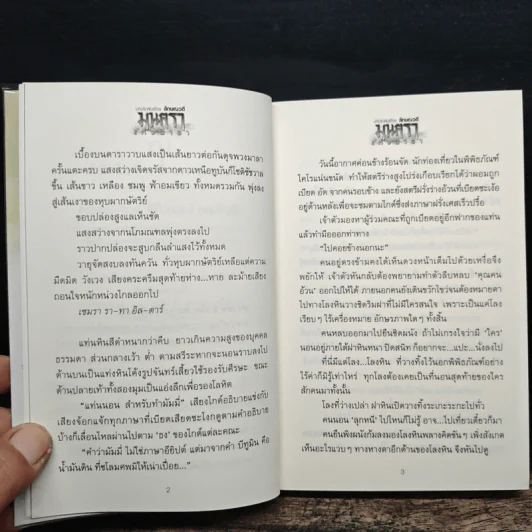 บทประพันธ์ของ ลักษณวดี
มนตรา
เบื้องบนดาราวาบแสงเป็นเส้นยาวต่อกันดุจพวงมาลา
ครั้นแตะครบ แสงสว่างเจิดจรัสจากดาวเหนือทูบันก็โชติชัชวาล
ขึ้น เส้นขาว เหลือง ชมพู ฟ้าอมเขียว ทั้งหมดรวมกัน พุ่งลง
สู่เส้นเงาของหุบผากษัตริย์
ขอบปล่องสูงแลเห็นชัด
แสงสว่างจากนโภมณฑลพุ่งตรงลงไป
ราวปากปล่องจะสูบกลืนลำแสงไว้ทั้งหมด
วายุจัดสงบลงทันควัน ทั่วหุบผากษัตริย์เหลือแต่ความ
มืดมิด วังเวง เสียงครวญครืมสุดท้ายห่าง...หาย ละม้ายเสียง
ถอนใจหนักหน่วงไกลออกไป
เชมรา รา-ทา อิล-ตาร์
แท่นหินสีดำหนากว่าคืบ ยาวเกินความสูงของบุคคล
ธรรมดา ส่วนกลางเว้า ต่ำ ตามสรีระหากจะนอนราบลงไป
ด้านบนเป็นแท่งหินโค้งรูปจันทร์เสี้ยวใช้รองรับศีรษะ ขณะ
ด้านปลายเท้าทั้งสองมุมเป็นแอ่งลึกเพื่อรองโลหิต
“แท่นนอน สำหรับทำมัมมี่” เสียงไกด์อธิบายแข่งกับ
เสียงจ้อกแจ้กทุกภาษาที่เบียดเสียดชะโงกดูตามคำอธิบาย
บ้างก็เลื่อนไหลผ่านไปตาม ‘ธง’ ของไกด์แต่ละคณะ
“คำว่ามัมมี่ ไม่ใช่ภาษาอียิปต์ แต่มาจากคำ บีทูมิน คือ
น้ำมันดิน ที่ชโลมศพมิให้เน่าเปื่อย...”
2
บทประพันธ์ของ ลักษณวดี
มนตรา
วันนี้อากาศค่อนข้างร้อนจัด นักท่องเที่ยวในพิพิธภัณฑ์
ไคโรแน่นขนัด ทำให้สตรีร่างสูงโปร่งเกือบเรียกได้ว่าผอมถูก
เบียด อัด จากคนรอบข้าง และยังสตรีฝรั่งร่างอ้วนที่เบียดชะเง้อ
อยู่ด้านหลังเพื่อจะชมตามไกด์ซึ่งส่งภาษาฝรั่งเศสเร็วปรื๋อ
เจ้าตัวมองหาผู้ร่วมคณะที่ถูกเบียดอยู่อีกฟากของแท่น
แล้วทำมือออกท่าทาง
“ไปคอยข้างนอกนะ”
คนอยู่ตรงข้ามคงได้เห็นดวงหน้าเต็มไปด้วยเหงื่อจึง
พยักให้ เจ้าตัวหันกลับต้องพยายามทำตัวลีบหลบ “คุณคน
อ้วน” ออกไปให้ได้ ภายนอกคนยังเดินขวักไขว่จนต้องทอดตา
ไปทางโลงหินวางชิดริมฝาที่ไม่มีใครสนใจ เพราะเป็นแค่โลง
เรียบๆ ไร้เครื่องหมาย อักษรภาพใดๆ ทั้งสิ้น
คนหลบออกมาไปยืนชิดผนัง ถ้าไม่เกรงใจว่ามี ‘ใคร’
นอนอยู่ภายใต้ฝาหินหนา ปิดสนิท ก็อยากจะ...แปะ...นั่งลงไป
ที่นี่มีแต่โลง...โลงหิน ที่วางทิ้งไว้นอกพิพิธภัณฑ์อย่าง
ไร้ค่าก็มิรู้เท่าไหร่ ทุกโลงต้องเคยเป็นที่นอนสุดท้ายของใคร
สักคนมาทั้งนั้น
โลงที่ว่างเปล่า ฝาหินเปิดวางทิ้งระเกะระกะไปทั่ว
คนนอน ‘ลุกหนี’ ไปไหนก็ไม่รู้ อาจ...ไปเที่ยวเดี๋ยวก็มา
คนยืนพิงผนังก้มลงมองโลงหินพลางคิดขันๆ เพิ่งสังเกต
เห็นอะไรแวบๆ ทางหางตาอีกด้านของโลงหิน จึงหันไปดู
3